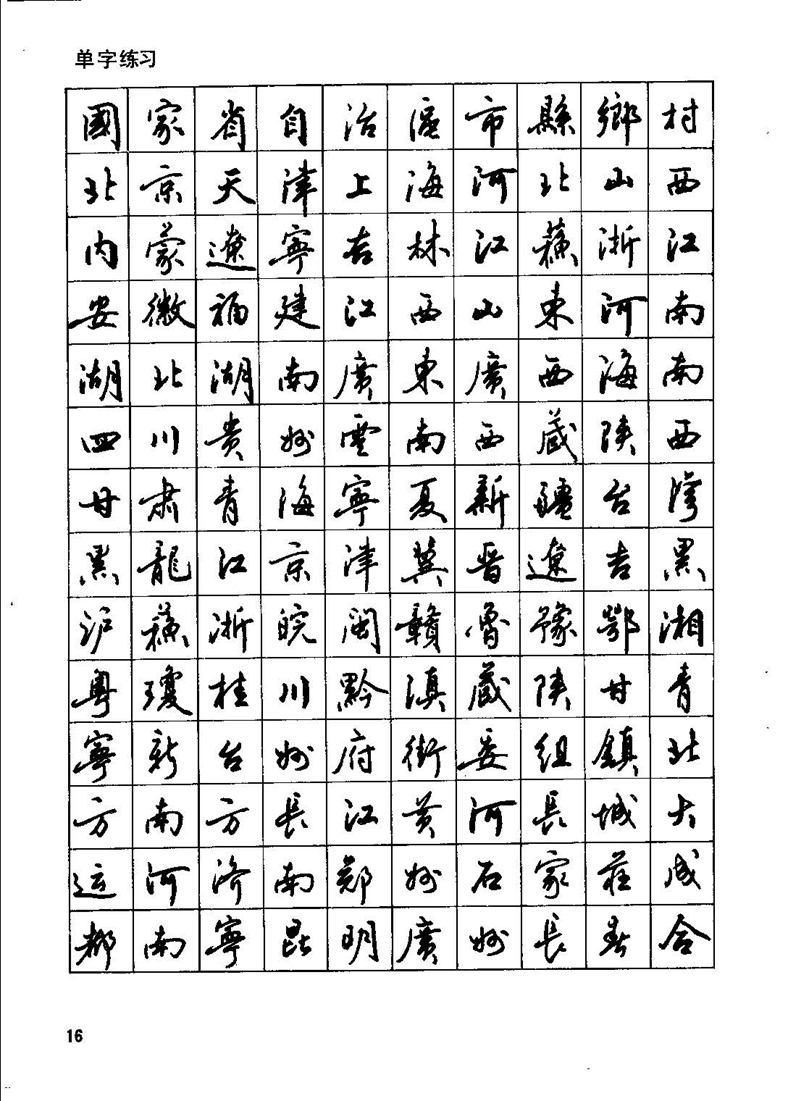 单字练习
國家省自治區市縣鄉村
北京天津上海河北山西
内蒙遼寧吉林江蘇浙江
安徽福建江西山東河南
湖北湖南廣東廣西海南
四川贵州雲南西藏陕西
甘肃青海寧夏新疆台湾
黑龍江京津冀晋遼吉黑
沪蘇浙皖闽贛魯豫鄂湘
粤瓊桂川黔滇藏陕甘青
寧新台州府街委组鎮北
方南方長江黄河長城大
运河济南郑州石家莊成
都南寧昆明廣州長春合
16